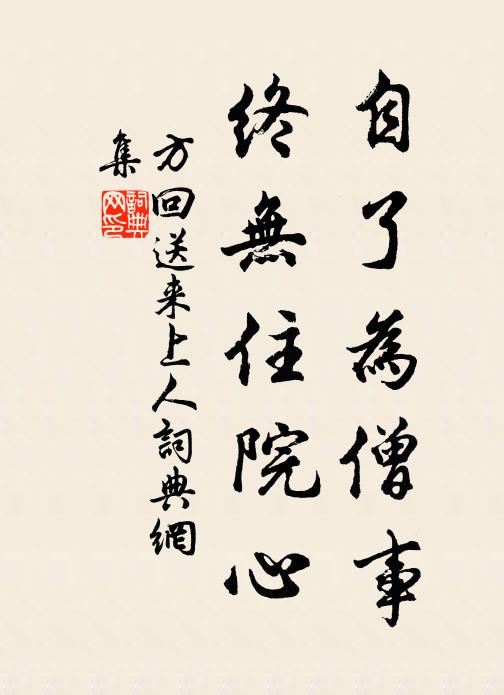 自了為僧事
終無住院心
方回送来上人詞典網
集
詞典
网印